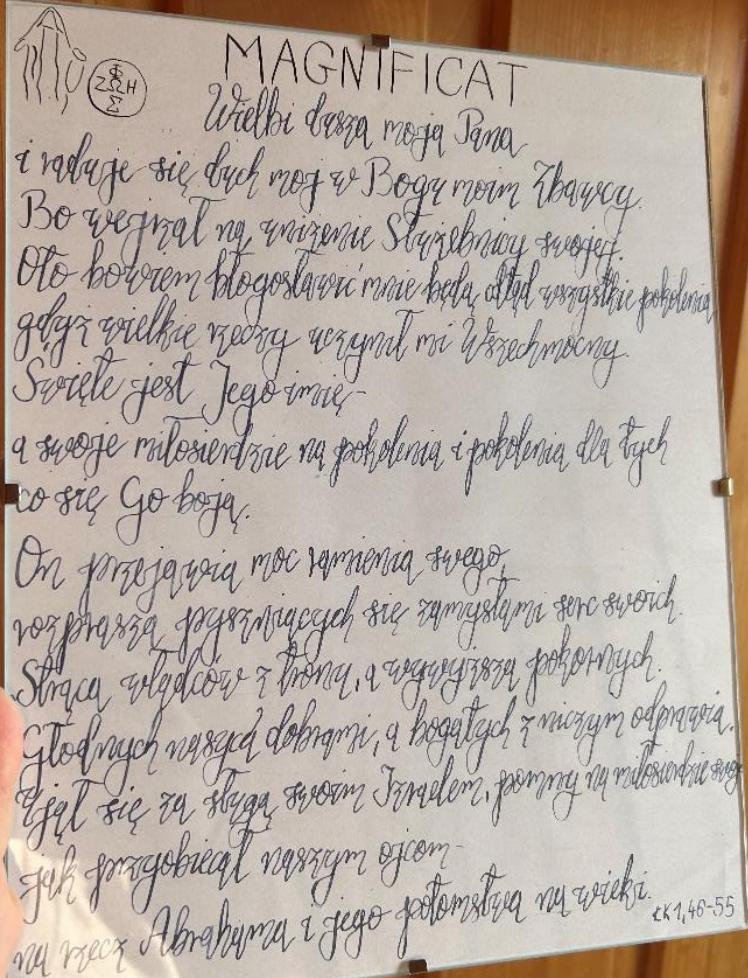 ΦΩΣ
ΖΩΗ
MAGNIFICAT
Wielbi dusza moja Pana
i raduje się duch mój w Bogu moim Zbawcy.
Bo wejrzał na uniżenie Służebnicy swojej.
Oto bowiem błogosławić mnie będą odtąd wszystkie pokolenia
gdyż wielkie rzeczy uczynił mi Wszechmocny.
Święte jest Jego imię-
a swoje miłosierdzie na pokolenia i pokolenia dla tych
co się Go boją.
On przejawia moc ramienia swego,
rozprasza pyszniących się zamysłami serc swoich.
Strąca władców z tronu, a wywyższa pokornych.
Głodnych nasyca dobrami, a bogatych z niczym odprawia.
Ujął się za sługą swoim Izraelem, pomny na miłosierdzie swoje
jak przyobiecał naszym ojcom-
na rzecz Abrahama i jego potomstwa na wieki.
ŁK 1,46-55